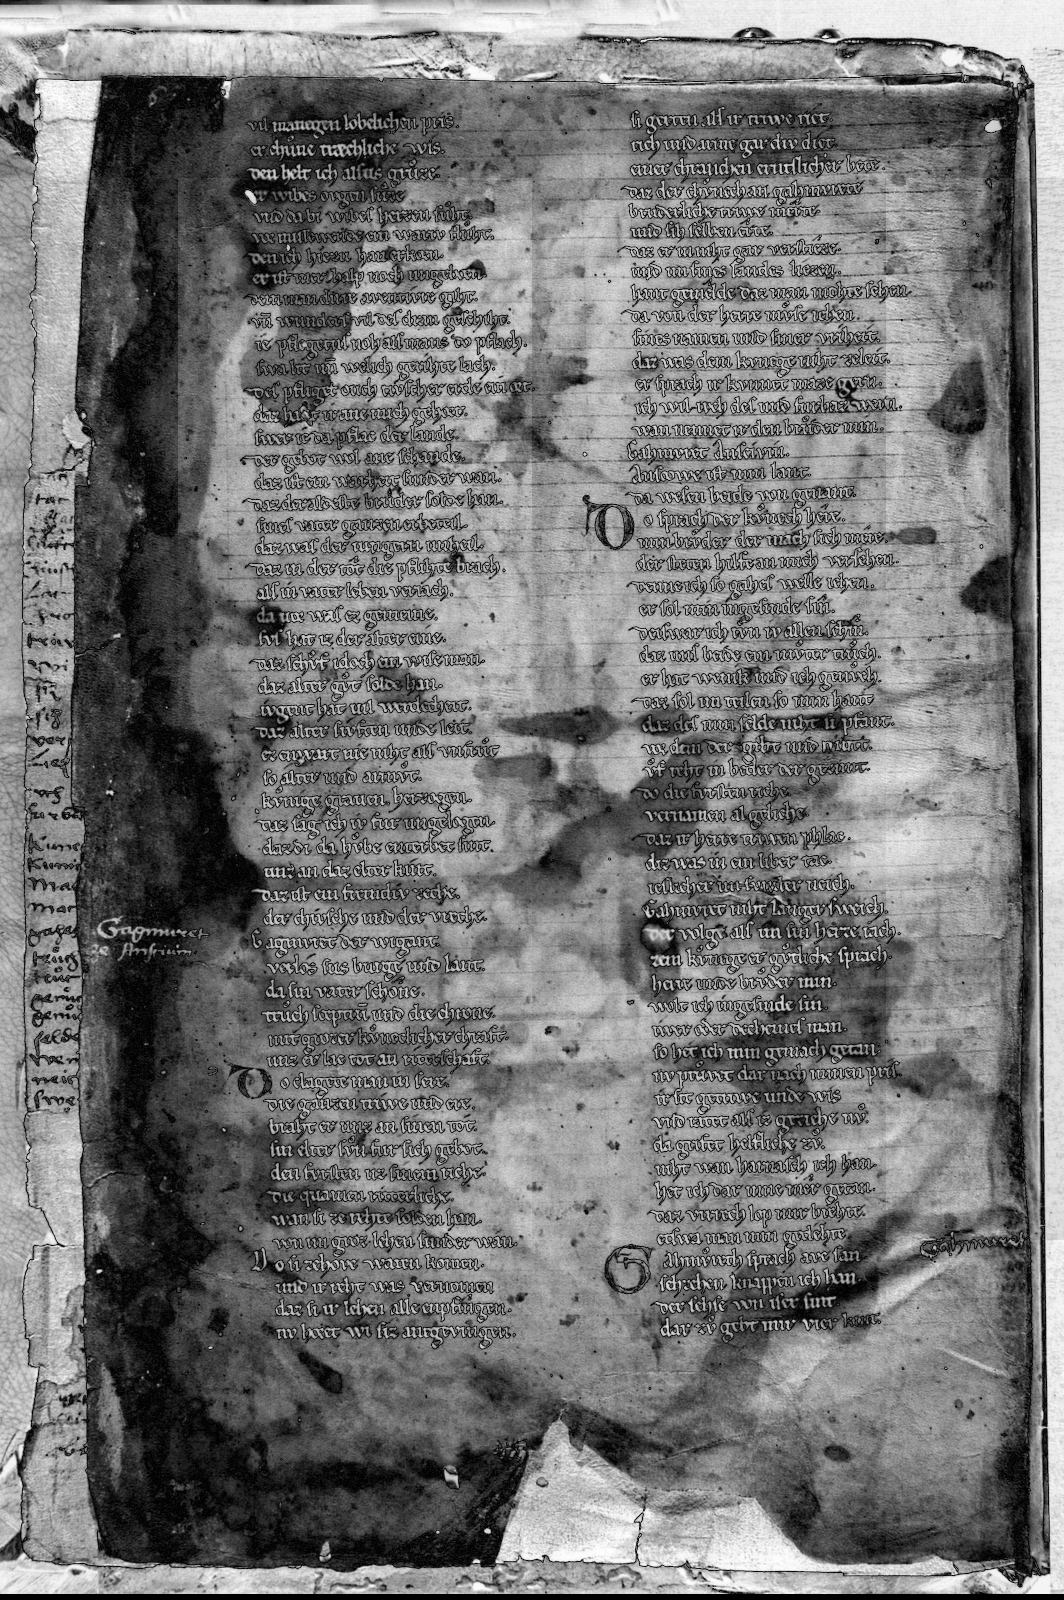 vil manegen lobelichen pris.
er chu̍ne træchliche wis.
den helt ich alsus gru̍ze.
er wibes ougen su̍ze
vnd da bi wibes herzen suht.
vor missewende ein wariv fluht.
den ich hiezu han erkorn.
er ist mer halp noch ungeborn.
dem man dirre aventivre giht.
vn̄ wunders vil des dran geschiht.
ie pflegent noh als mans do pflach.
swa lit vn̄ welich gerihte lach.
des pfliget ouch tivscher erde ein ort.
daz habt ir ane mich gehort.
swer ie da pflac der lande.
der gebot wol ane schande.
daz ist ein warheit sunder wan.
daz der aldeste bruder solde han.
sines vater ganzen erbeteil.
daz was der iungern unheil.
daz in der tot die pflihte brach.
als in vater leben veriach.
da vor was ez gemeine.
sus hat iz der alter eine.
daz schuf idoch ein wise man.
daz alter gut solde han.
iugent hat vil werdecheit.
daz alter siuften unde leit.
ez enwart nie niht als unfrut
so alter und armut.
kunige grauen. herzogen.
daz sag ich iv fur ungelogen
daz di da hube enterbet sint.
unz an daz elter kint.
daz ist ein fremdiv zeche.
der chivsche und der vreche.
Gagmuret der wigant.
verlos sus burge und lant.
da sin vater schone.
truch sceptrū und die chrone.
mit grozer kuneclicher chraft.
unz er lac tot an riterschaft.
Do clagete man in sere.
die ganzen triwe und ere.
braht er unz an sinen tot.
sin elter sun fur sich gebot.
den fursten uz sinem riche.
die quamen ritterliche.
wan si ze rehte solden han.
von im groz lehen sunder wan.
Do si ze hove waren komen.
und ir reht was vernomen
daz si ir lehen alle enpfingen.
nv horet wi siz anegevingen.
Gagmuret
ze Anschouin
si gerten als ir triwe riet
rich und arme gar div diet.
einer chranchen ernstlicher bete.
daz der chunech an gahmurete
bruderliche triwe merte
und sih selben erte.
daz er in niht gar verstieze.
und im sines landes liezen.
hant gemelde daz man mohte sehen.
da von der herre muse iehen.
sines namen und siner vriheit.
daz was dem kunege niht ze leit.
er sprach ir kunnet maze gern.
ich wil iuch des und furbaz wern.
wan nennet ir den bruder min.
Gahmuret Anscivin.
Anscowe ist min lant.
da wesen beide von genant.
Do sprach der kunech here.
min bruder der mach sich mere.
der steten hilfe an mich versehen.
denne ich so gahes welle iehen.
er sol min ingesinde sin.
deiswar ich tvn iv allen schin.
daz uns beide ein muter truch.
er hat wenik und ich genuch.
daz sol im teilen so min hant
daz des min selde niht si pfant.
vor dem der gibt und nimt.
uf reht in beider der gezimt.
do die fursten riche
vernamen al geliche
daz ir herre triwen phlac.
diz was in ein liber tac.
ieslicher im sunder neich.
Gahmuret niht langer sweich.
der volge als im sin herze iach.
zem kunige er gutliche sprach.
herre unde bruder min.
wolt ich ingesinde sin.
iwer oder decheines man.
so het ich min gemach getan
nv pruvet dar nach minen pris.
ir sit getriwe unde wis
und ratet als iz geziehe nv.
da grifet helfliche zv.
niht wan harnasch ich han.
het ich dar inne mer getan.
daz virrech lop mir brehte.
etswa man min gedehte
Gahmureth sprach ave san
sehzehen knappen ich han.
der sehse von iser sint.
dar zu gebt mir vier kint.
Gahmuret